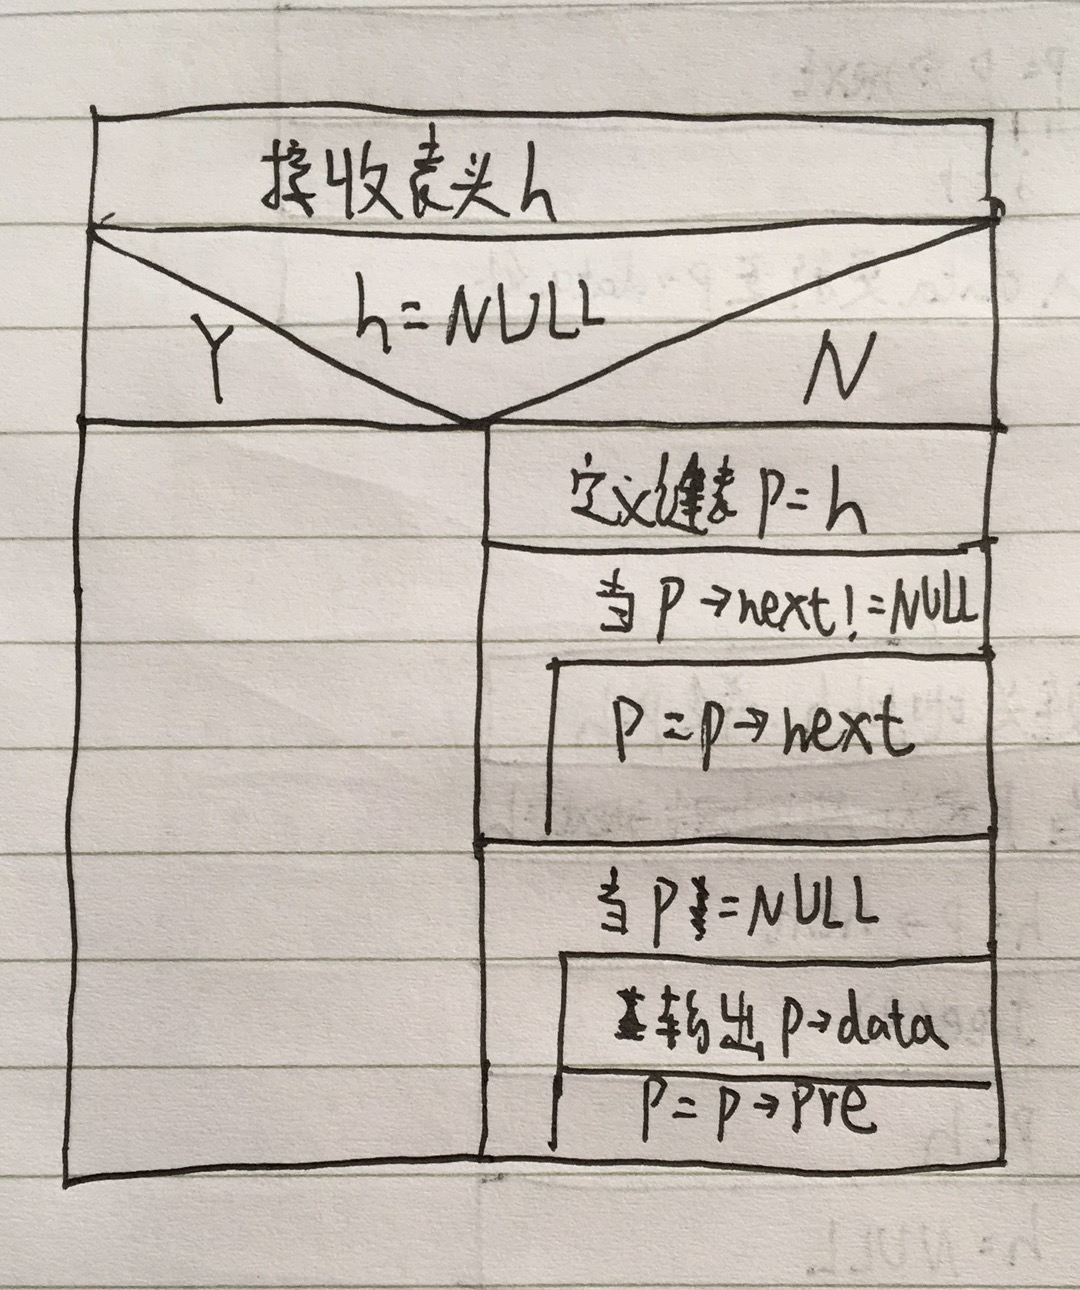 接收表头h
h=NULL
Y
N
定义链表 P=h
当 P→next!=NULL
P=p→next
当 P!=NULL
输出 p→data
P=p→pre